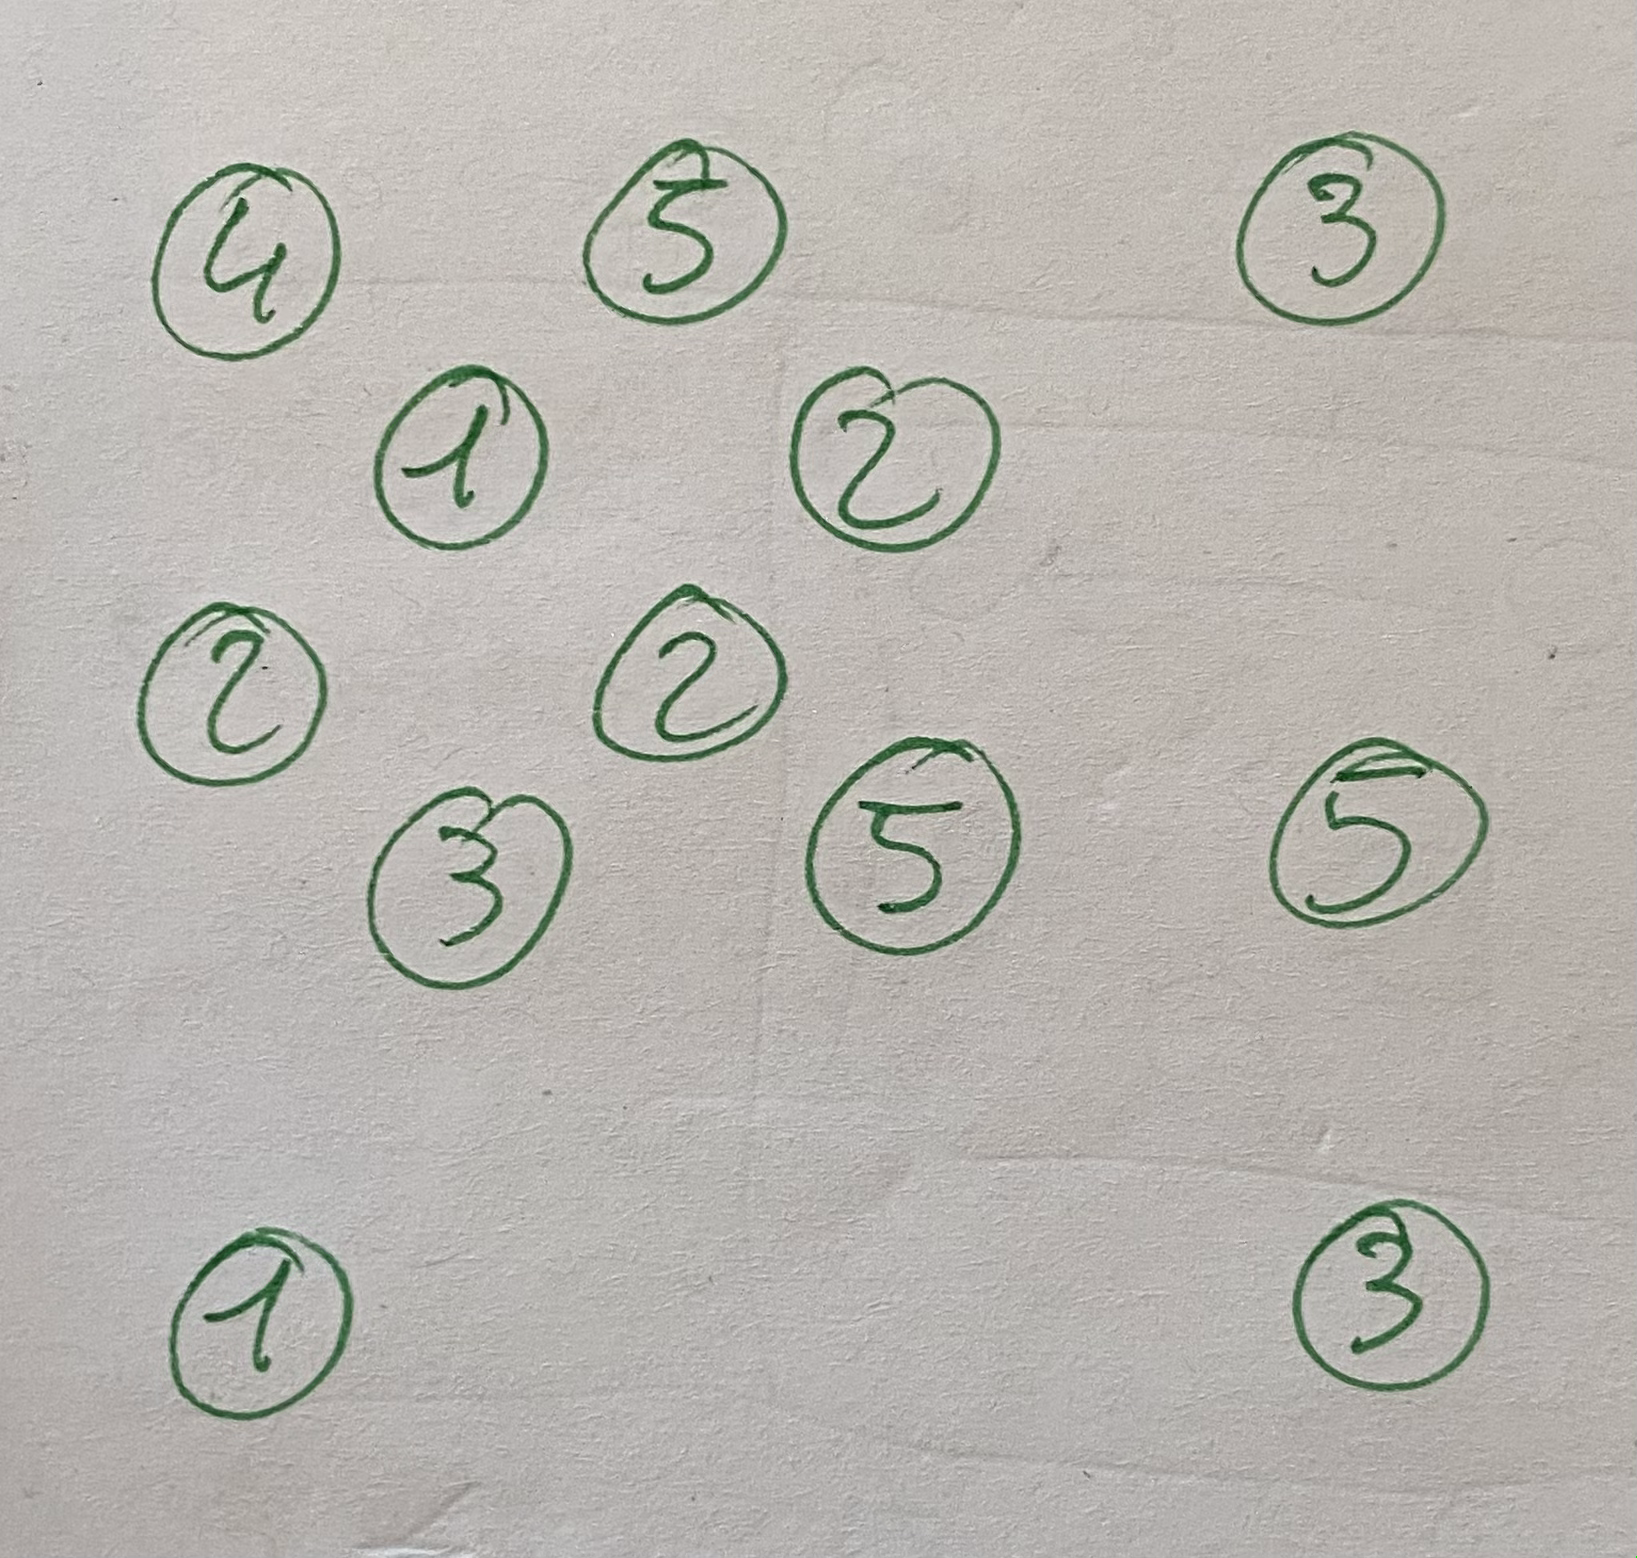 4 5 3
1 2
2 2
3 5 5
1 3